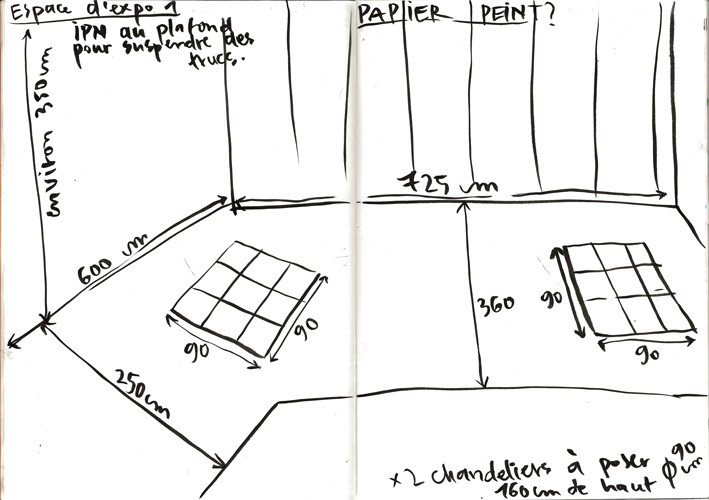 Espace d'expo 1
IPN au plafond
pour suspendre des
trucs.
PAPIER PEINT?
environ 350 cm
725 cm
600 cm
90
90
360
90
90
250 cm
x2 chandeliers à poser Ø 90 cm
160 cm de haut